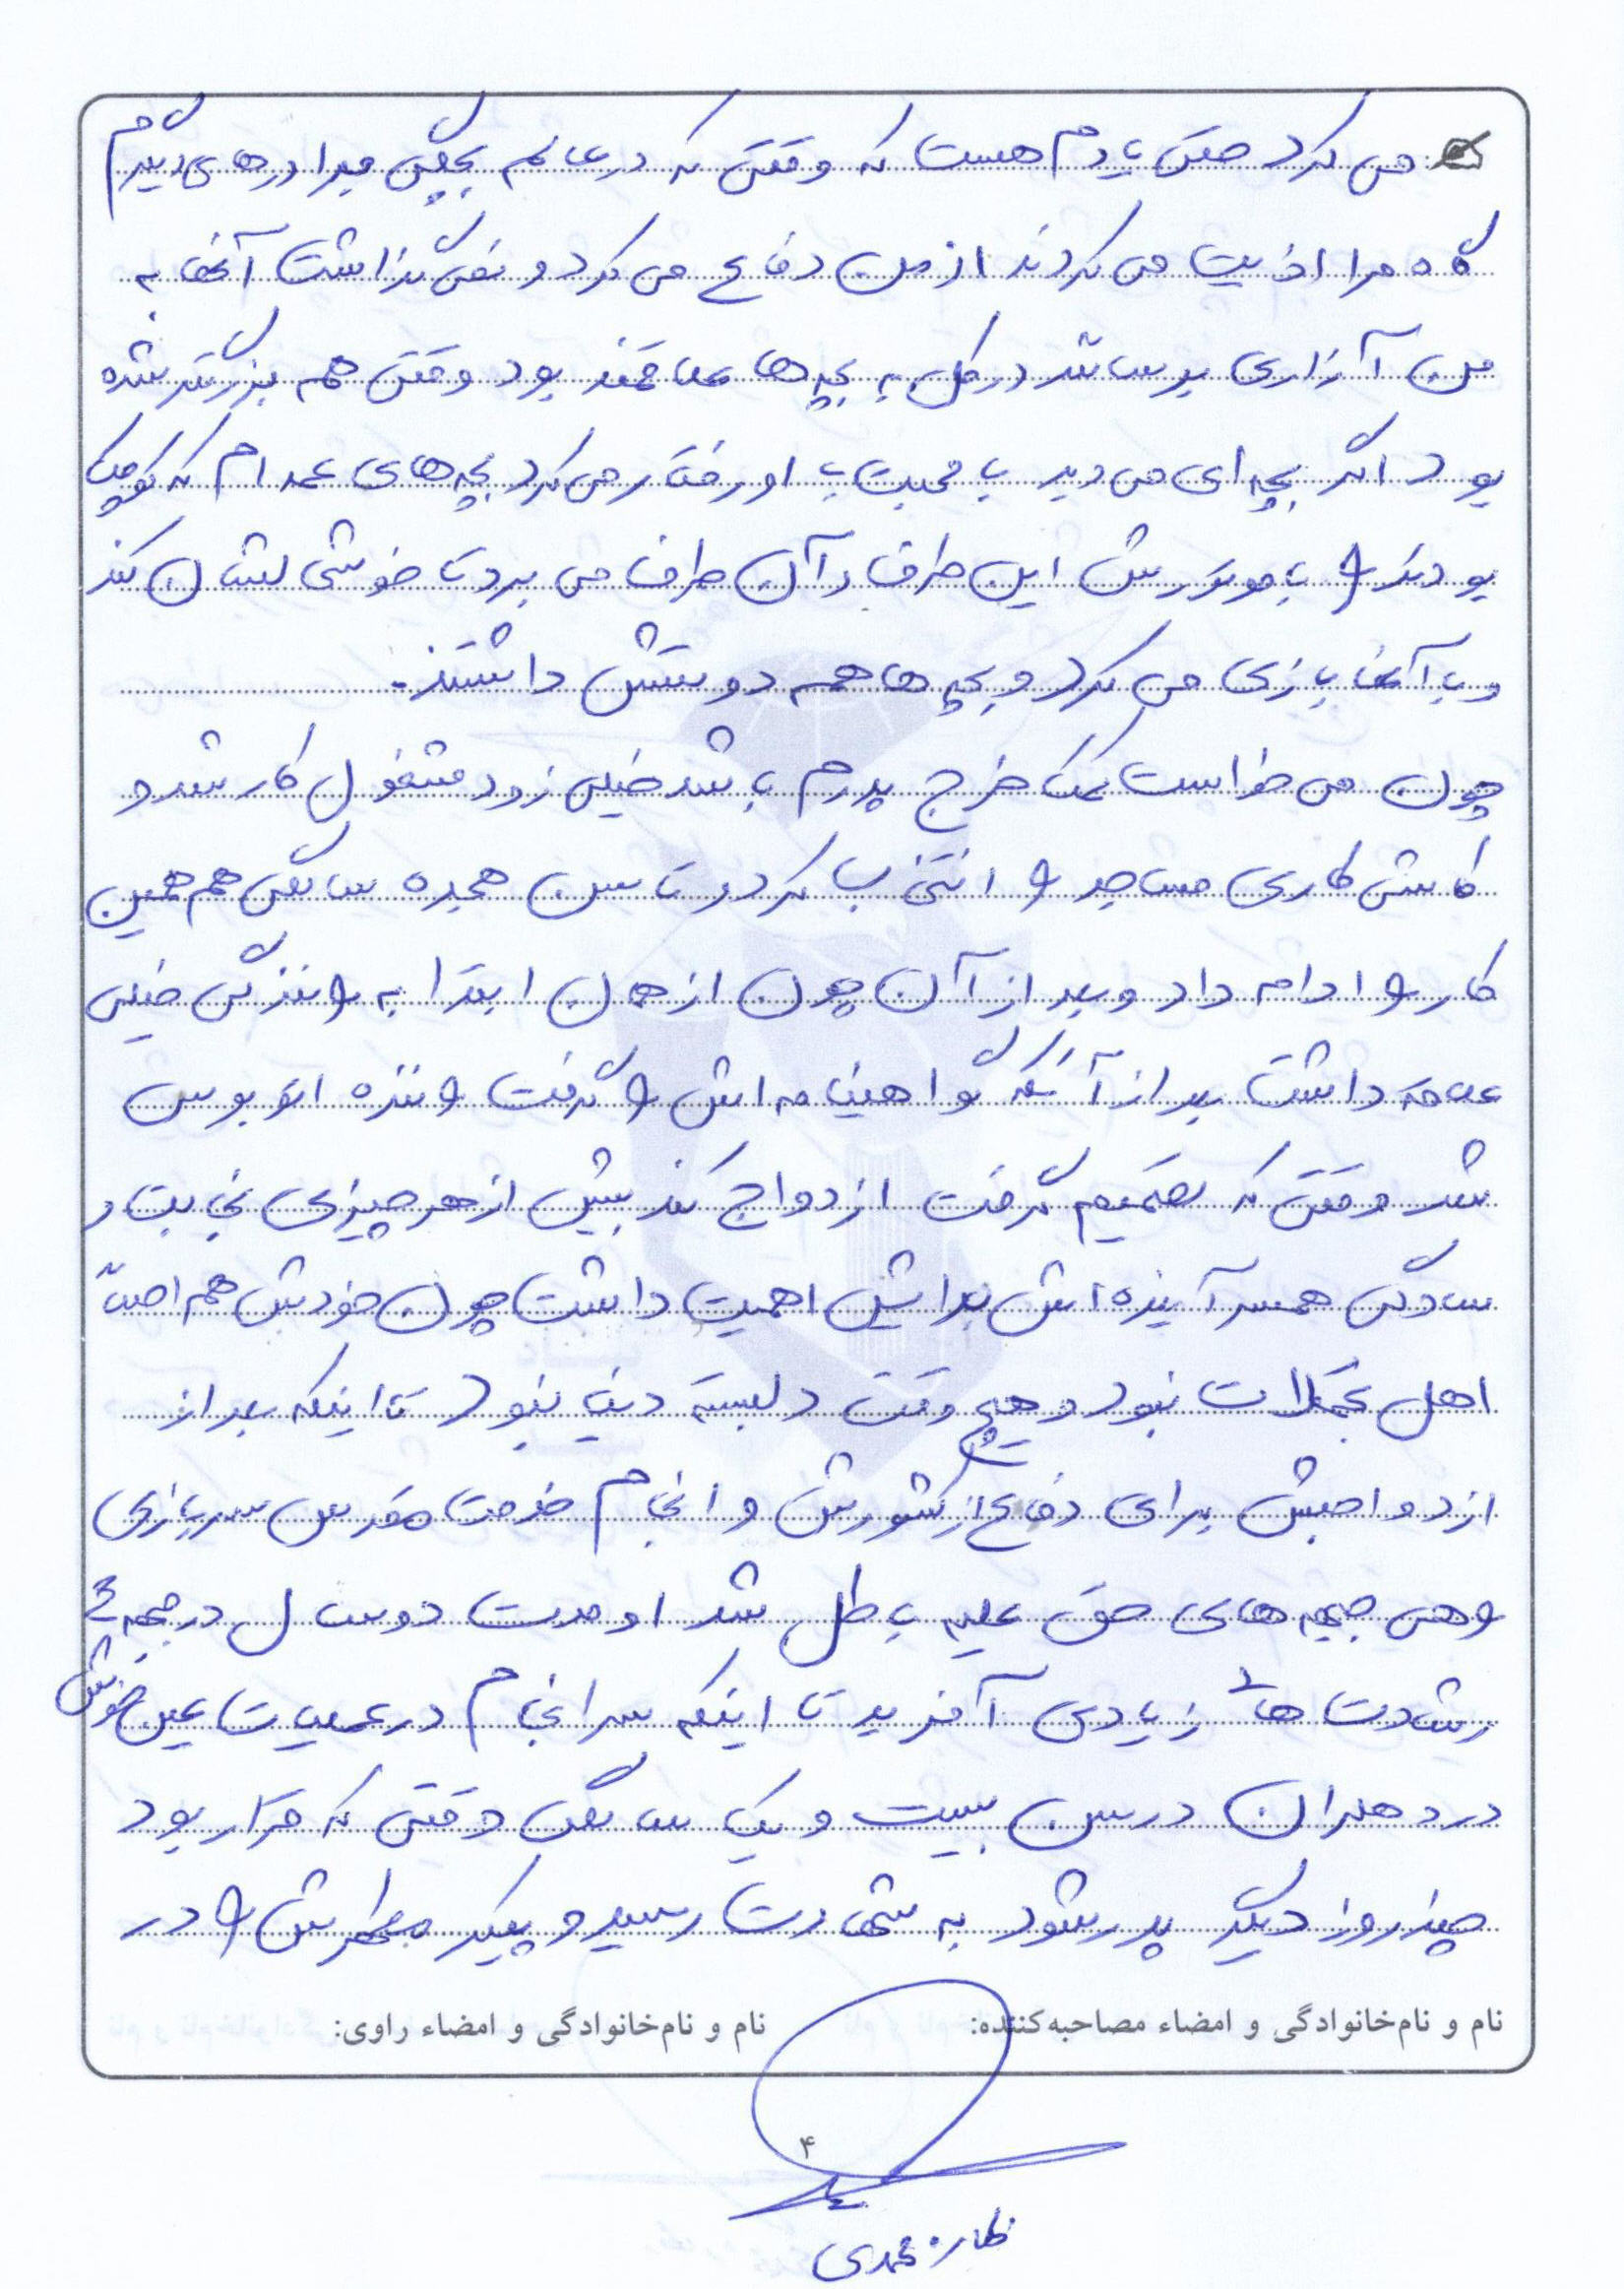 می کرد حتی یادم هست که وقتی که در عالم بچگی برادرهای دیگرم
گاه مرا اذیت می کردند از من دفاع می کرد و نمی گذاشت آنها به
من آزاری برسانند در کل به بچه ها علاقمند بود وقتی هم بزرگتر شده
بود اگر بچه ای می دید با محبت با او رفتار می کرد بچه های عمه ام که کوچک
بودند را با موتورش این طرف و آن طرف می برد تا خوشحالشان کند
و با آنها بازی می کرد و بچه ها همه دوستش داشتند.
چون می خواست کمک خرج پدرم باشد خیلی زود مشغول کار شد و
کاشی کاری مساجد را انتخاب کرد و تا سن هجده سالگی هم همین
کار را ادامه داد و بعد از آن چون از همان ابتدا به رانندگی خیلی
علاقه داشت بعد از آنکه گواهینامه اش را گرفت راننده اتوبوس
شد وقتی که تصمیم گرفت ازدواج کند بیش از هر چیزی نجابت و
سادگی همسر آینده اش برایش اهمیت داشت چون خودش هم اصلاً
اهل تجملات نبود و هیچ وقت دلبسته دنیا نبود تا اینکه بعد از
ازدواجش برای دفاع از کشورش و انجام خدمت مقدس سربازی
راهی جبهه های حق علیه باطل شد او مدت دو سال در جبهه
رشادت های زیادی آفرید تا اینکه سرانجام در عملیات عین خوش
در دهلران در سن بیست و یک سالگی وقتی که قرار بود
چند روز دیگر پدر شود به شهادت رسید و پیکر مطهرش را در
نام و نام‌خانوادگی و امضاء مصاحبه‌کننده: نام و نام‌خانوادگی و امضاء راوی:
۴
محمدی